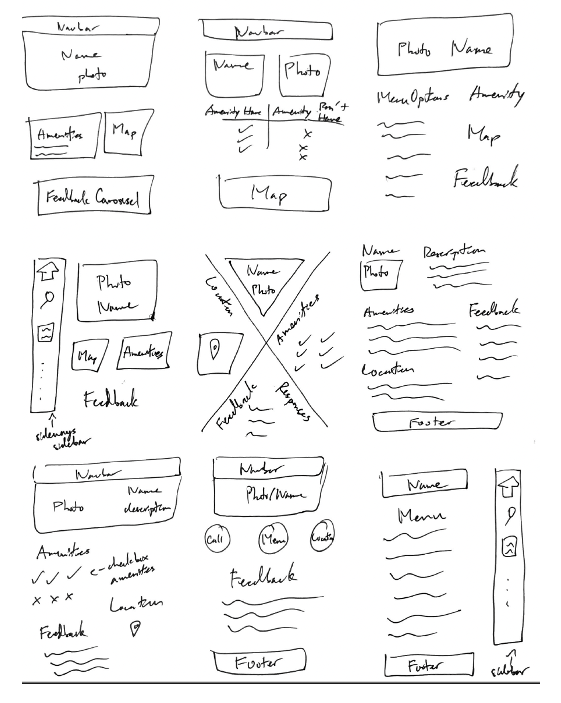 Navbar
Name
photo
Amenities
Map
Feedback Carousel
Navbar
Name
Photo
Amenity Have
Amenity Don't Have
Map
Photo Name
Menu Options
Amenity
Map
Feedback
Photo
Name
Map
Amenities
Feedback
sideways
sidebar
Name
Photo
Location
Amenities
Feedback
Responses
Name
Description
Photo
Amenities
Feedback
Location
Footer
Navbar
Photo
Name
description
Amenities
<- checkbox
amenities
Location
Feedback
Navbar
Photo/Name
Call
Menu
Location
Feedback
Footer
Name
Menu
Footer
sidebar